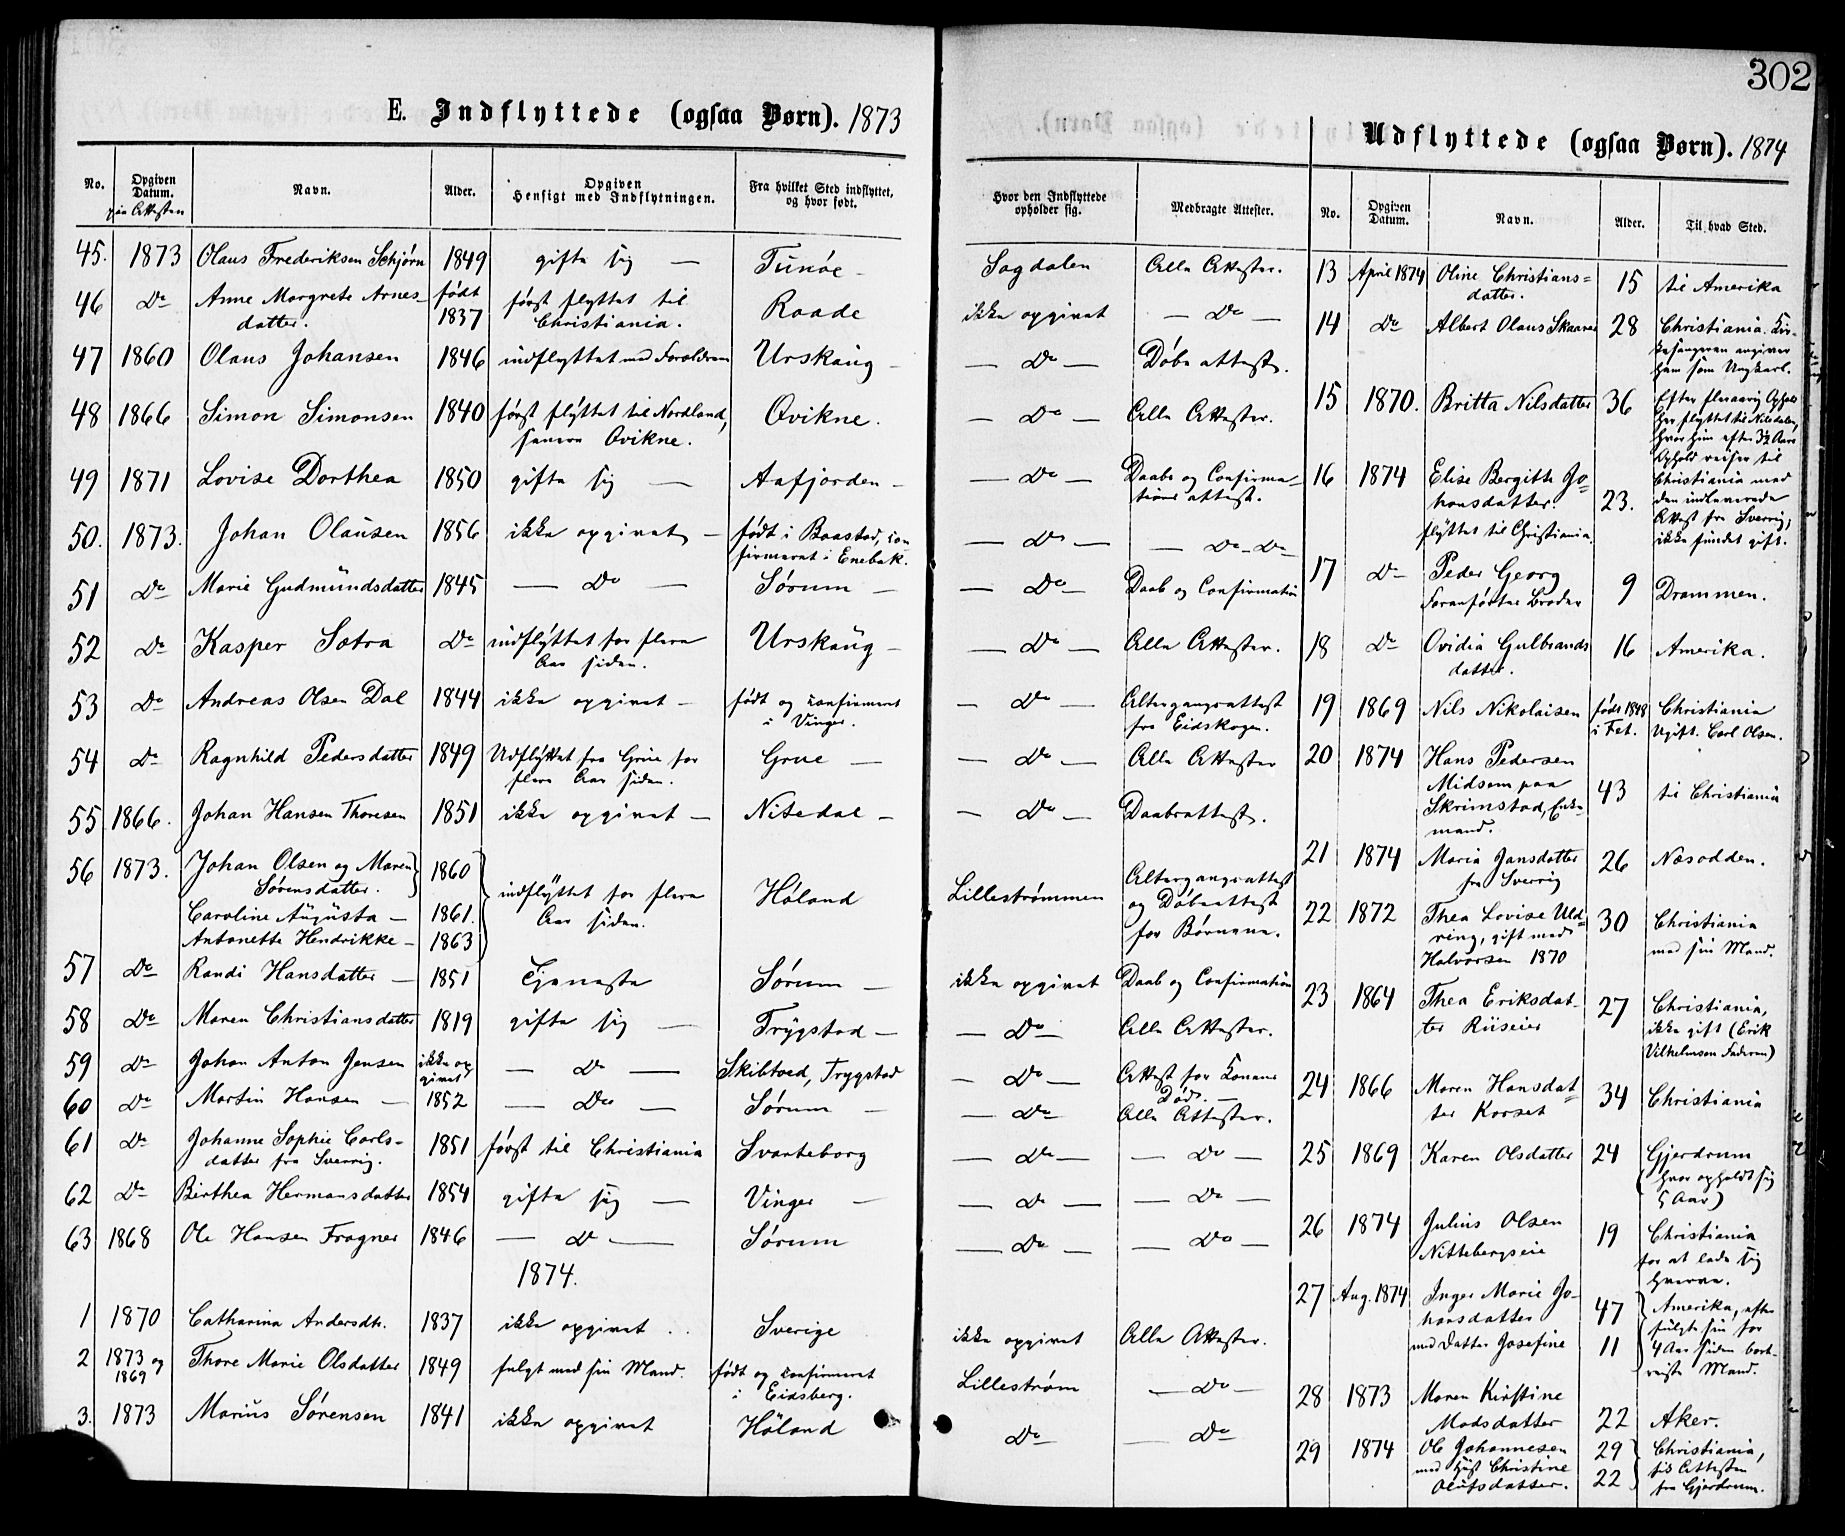 302
E. Indflyttede (ogsaa Børn). 1873
No.
Opgiven Datum.
paa Attesten
Navn.
Alder.
Opgiven Hensigt med Indflytningen.
Fra hvilket Sted indflyttet, og hvor født.
Hvor den Indflyttede opholder sig.
Medbragte Attester.
45. 1873 Olaus Frederiksen Schjørn 1849 gifte sig — Tunøe — Sagdalen Alle Attester.
46 Do Anne Margrete Arnes-
datter. født 1837 først flyttet til
Christiania. Raade ikke opgivet — Do —
47 1860 Olaus Johansen 1846 indflyttet med Forældrene Urskaug — Do — Døbeattest.
48 1866 Simon Simonsen 1840 først flyttet til Nordland,
senere Qvikne. Qvikne. — Do — Alle Attester.
49 1871 Lovise Dorthea 1850 gifte sig — Aafjorden — — Do — Daabs og Confirma-
tions attest.
50. 1873. Johan Olausen 1856 ikke opgivet — født i Baastad, con
firmeret i Enebak. — Do — — Do — Do
51 Do Marie Gudmundsdatter 1845 — Do — Sørum — — Do — Daab og Confirmation
52 Do Kasper Sotra Do indflyttet for flere
Aar siden. Urskaug — — Do — Alle Attester.
53 Do Andreas Olsen Dal 1844 ikke opgivet — født og confirmeret
i Vinger. — Do — Altergangsattest
fra Eidskogen.
54 Do Ragnhild Pedersdatter 1849 Udflyttet fra Grue for
flere Aar siden. Grue — — Do — Alle Attester
55 1866. Johan Hansen Thoresen 1851 ikke opgivet — Nitedal — — Do — Daabsattest.
56 1873. Johan Olsen og Maren
Sørensdatter. 1860
Caroline Augusta — 1861.
Antonette Hendrikke — 1863 indflyttet for flere
Aar siden. Høland Lillestrømmen Altergangsattest
og Døbeattest
for Børnene.
57 Do Randi Hansdatter — 1851 Tjeneste Sørum — ikke opgivet Daab og Confirmation
58 Do Maren Christiansdatter 1819 gifte sig — Trygstad — — Do — Alle Attester.
59 Do Johan Anton Jensen ikke op
givet — Do — Skibtved, Trygstad — Do — Attest for Konens
Død. —
60 Do Martin Hansen — 1852 — Do — Sørum — — Do — Alle Attester.
61 Do Johanne Sophie Carls-
datter fra Sverrig. 1851 først til Christiania Svarteborg — Do — — Do —
62 Do Birthea Hermansdatter 1854 gifte sig — Vinger — — Do — — Do —
63 1868 Ole Hansen Fragner 1846 — Do — Sørum — Do — — Do —
1874.
1 1870 Catharina Andersdtr. 1837 ikke opgivet . . Sverige ikke opgivet Alle Attester.
2 1873 og
1869 Thore Marie Olsdatter 1849 fulgt med sin Mand. født og confirmeret
i Eidsberg. Lillestrøm — Do —
3. 1873 Marius Sørensen 1841 ikke opgivet Høland Do — Do
Udflyttede (ogsaa Børn). 1874
No.
Opgiven Datum.
Navn.
Alder.
Til hvad Sted.
13 April 1874 Oline Christians=
datter. 15 til Amerika
14 Do Albert Olaus Skaarer 28 Christiania. Kir-
kesangeren angiver
ham som Ungkarl.
15 1870. Britta Nilsdatter 36 Efter fleraarig Ophold
her flyttet til Nitedalen,
hvor hun efter 3½ Aars
Ophold reiser til
Christiania med
den indleverede
Attest fra Sverrig,
ikke fundet gift.
16 1874 Elise Bergitte Jo=
hansdatter. 23.
flyttet til Christiania.
17 Do Peder Georg
Foranførtes Broder 9 Drammen.
18 Do Ovidia Gulbrands
datter. 16 Amerika.
19 1869 Nils Nikolaisen født 1848
i Fet. Christiania
Ugift. Carl Olsen.
20 1874 Hans Pedersen
Midsem paa
Skrimstad, Enke-
mand. 43 til Christiania
21 1874 Maria Jansdatter
fra Sverrig 26 Næsodden.
22 1872 Thea Lovise Uld=
ring, gift med
Halvorsen 1870 30 Christiania
med sin Mand.
23 1864 Thea Eriksdat-
ter Riiseier 27 Christiania,
ikke gift (Erik
Vilhelmsen Faderen)
24 1866 Maren Hansdat=
ter Korset 34 Christiania
25 1869 Karen Olsdatter 24 Gjerdrum
(hvor opholdt sig
5 Aar)
26 1874 Julius Olsen
Nittebergseie 19 Christiania
for at lade sig
hverve.
27 Aug. 1874 Inger Marie Jo-
hansdatter 47
med Datter Josefine 11 Amerika, efter
fulgte sin for
4 Aar siden bort-
reiste Mand.
28 1873 Maren Kirstine
Madsdatter 22 Aker.
29 1874 Ole Johannesen 29
med Hust. Christine
Olufsdatter. 22 Christiania,
Attesten
fra Gjerdrum.